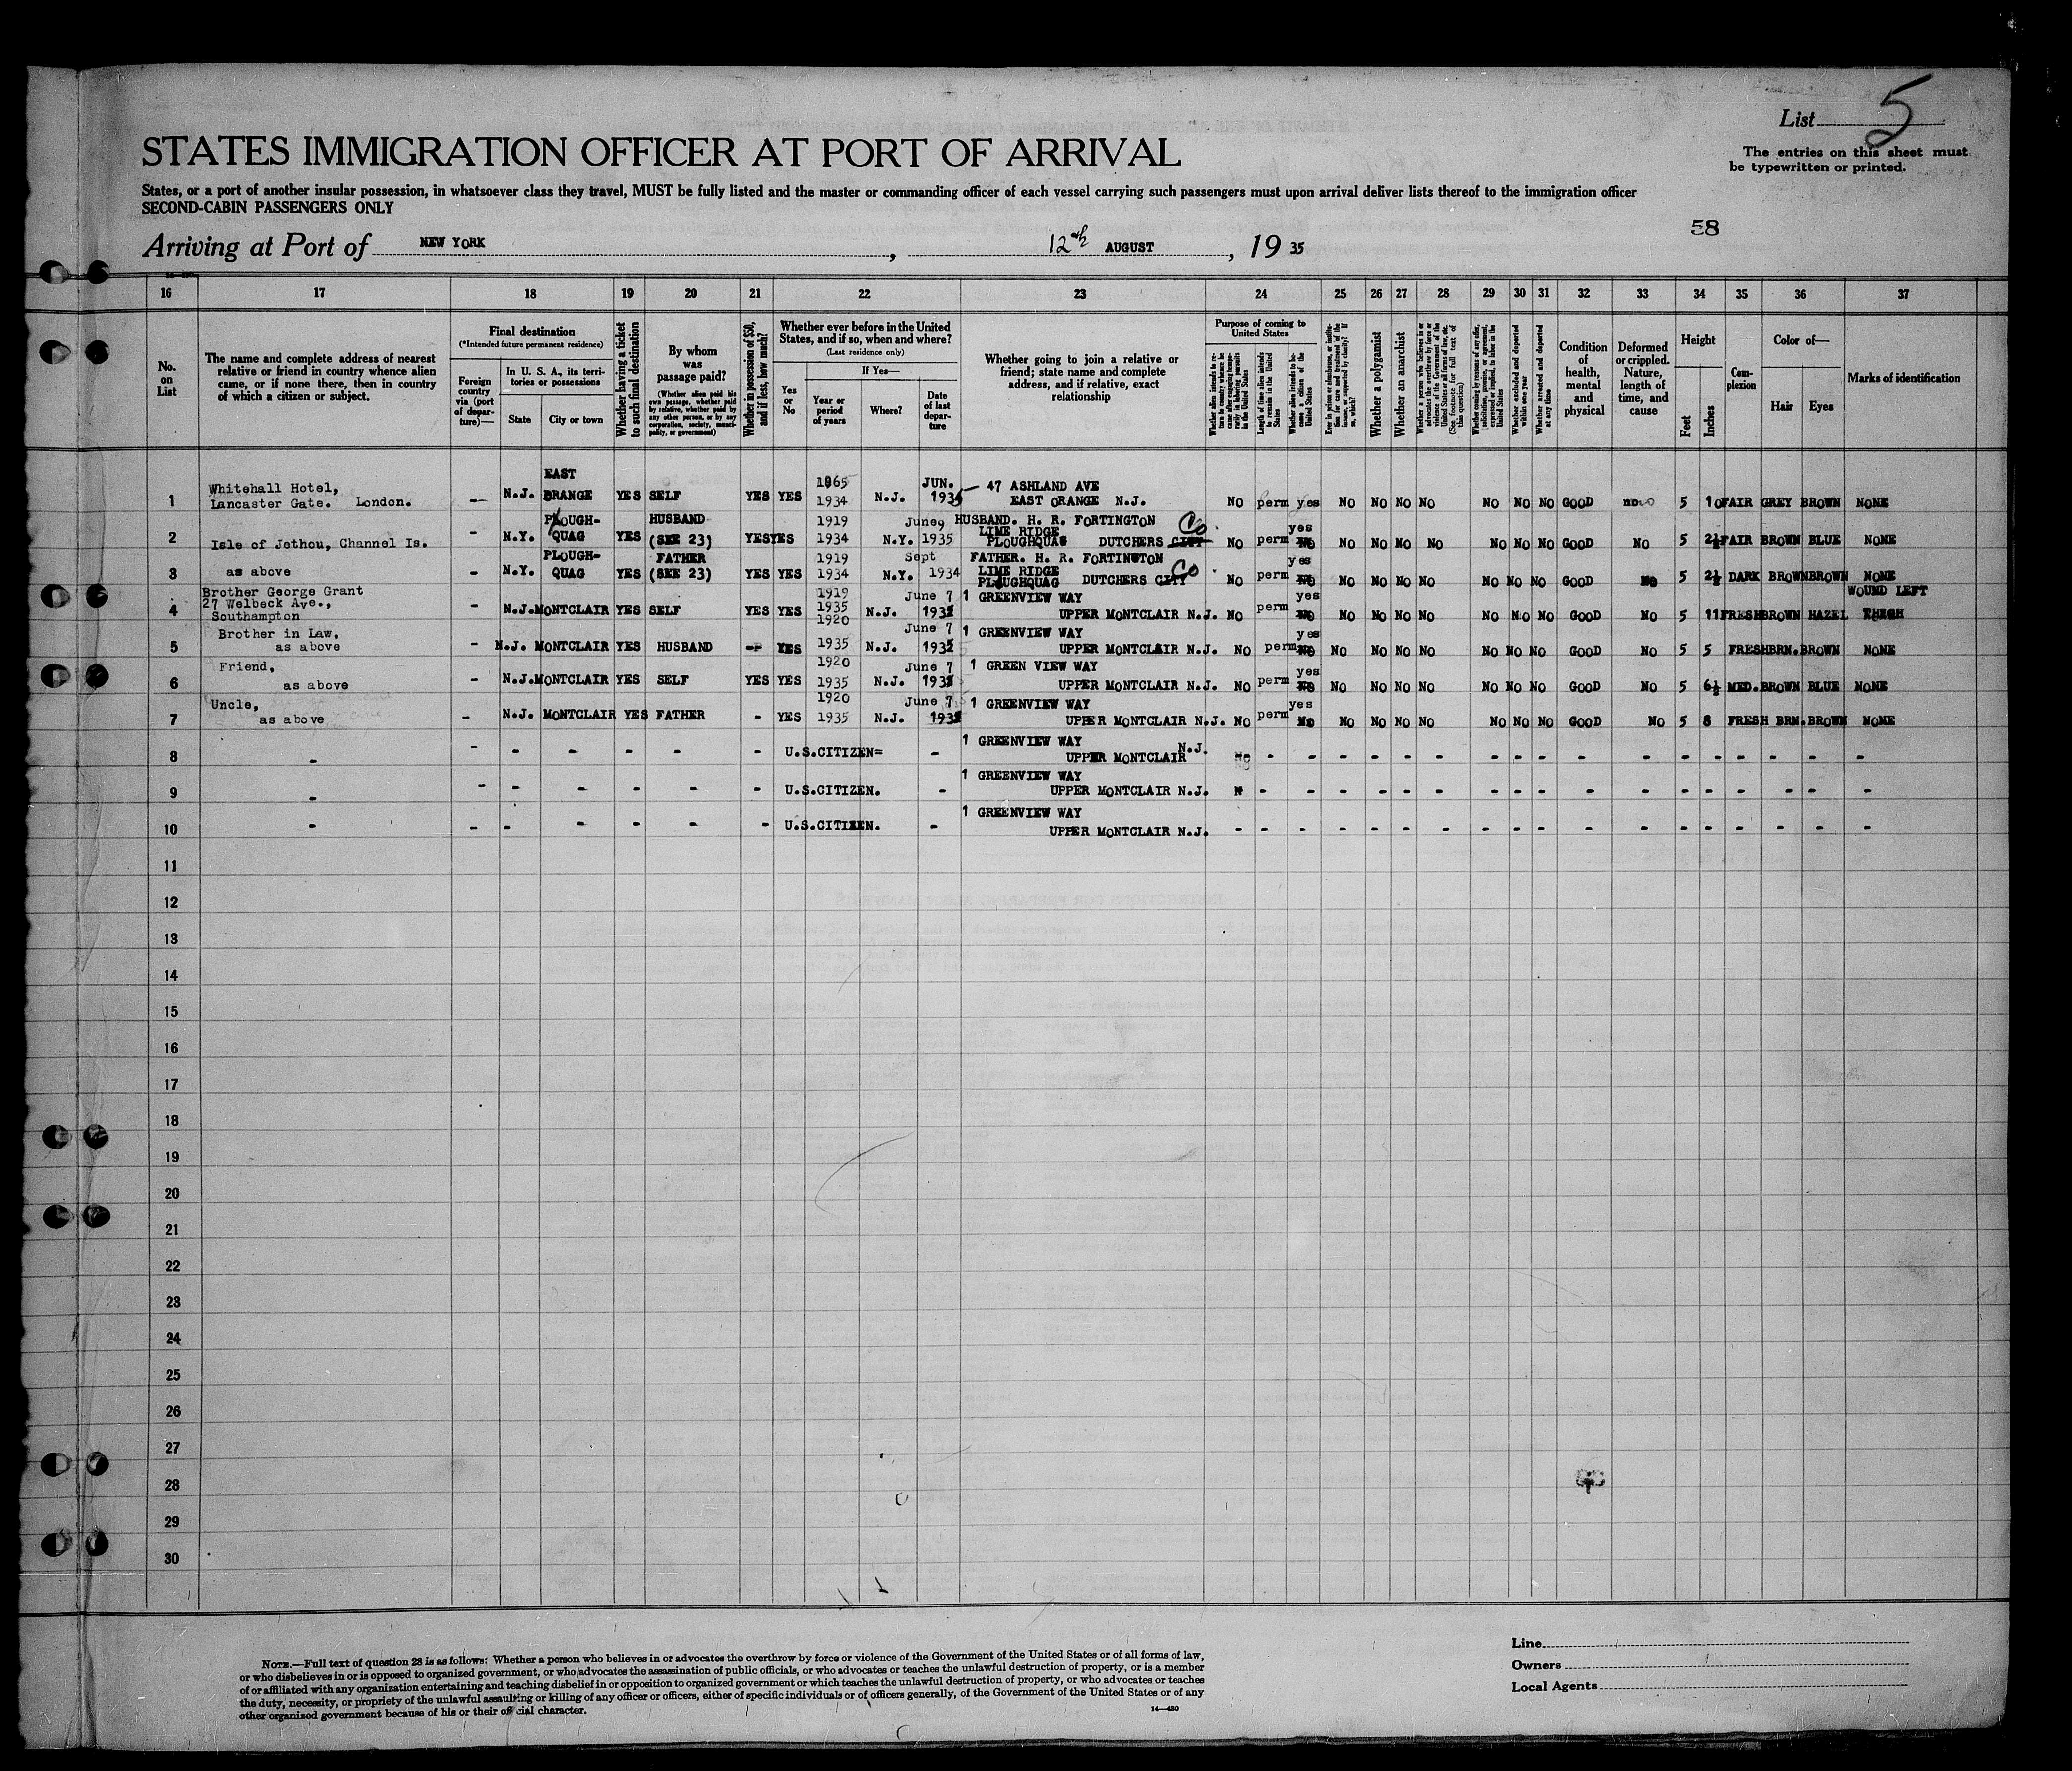 List 5
The entries on this sheet must
be typewritten or printed.
STATES IMMIGRATION OFFICER AT PORT OF ARRIVAL
States, or a port of another insular possession, in whatsoever class they travel, MUST be fully listed and the master or commanding officer of each vessel carrying such passengers must upon arrival deliver lists thereof to the immigration officer
SECOND-CABIN PASSENGERS ONLY
58
Arriving at Port of NEW YORK, 12th AUGUST, 19 35
16 17 18 19 20 21 22 23 24 25 26 27 28 29 30 31 32 33 34 35 36 37
No. on List
The name and complete address of nearest
relative or friend in country whence alien
came, or if none there, then in country
of which a citizen or subject.
Final destination
(*Intended future permanent residence)
Foreign country via (port of departure)—
In U. S. A., its territories or possessions
State
City or town
Whether having a ticket to such final destination
By whom was passage paid?
(Whether alien paid his own passage, whether paid by relative, whether paid by any other person, or by any corporation, society, municipality, or government)
Whether in possession of $50, and if less, how much?
Whether ever before in the United
States, and if so, when and where?
(Last residence only)
Yes or No
If Yes—
Year or period of years
Where?
Date of last departure
Whether going to join a relative or
friend; state name and complete
address, and if relative, exact
relationship
Purpose of coming to
United States
Whether alien intends to return to country whence he came after engaging temporarily in laboring pursuits in the United States
Length of time alien intends to remain in the United States
Whether alien intends to become a citizen of the United States
Ever in prison or almshouse, or institution for care and treatment of the insane, or supported by charity? If so, which?
Whether a polygamist
Whether an anarchist
Whether coming by reason of any offer, solicitation, promise, or agreement, expressed or implied, to labor in the United States
Whether excluded and deported within one year
Whether arrested and deported at any time
Condition of health, mental and physical
Deformed or crippled. Nature, length of time, and cause
Height
Feet
Inches
Complexion
Color of—
Hair
Eyes
Marks of identification
1 Whitehall Hotel, Lancaster Gate. London. — N.J. EAST ORANGE YES SELF YES YES 1934 N.J. JUN. 47 ASHLAND AVE EAST ORANGE N.J. NO perm yes NO NO NO NO NO NO NO GOOD no 5 10 FAIR GREY BROWN NONE
2 Isle of Jethou, Channel Is. - N.Y. PLOUGH-QUAG YES HUSBAND (SEE 23) YES YES 1919 1934 N.Y. June 9 1935 HUSBAND. H. R. FORTINGTON LIME RIDGE PLOUGHQUAG DUTCHERS CITY Co NO perm yes NO NO NO NO NO NO NO NO GOOD NO 5 2½ FAIR BROWN BLUE NONE
3 as above - N.Y. PLOUGH-QUAG YES FATHER (SEE 23) YES YES 1919 1934 N.Y. Sept 1934 FATHER. H. R. FORTINGTON LIME RIDGE PLOUGHQUAG DUTCHERS CITY Co NO perm yes NO NO NO NO NO NO NO NO GOOD NO 5 2½ DARK BROWN BROWN NONE
4 Brother George Grant 27 Welbeck Ave., Southampton - N.J. MONTCLAIR YES SELF YES YES 1919 1935 N.J. June 7 1 GREENVIEW WAY UPPER MONTCLAIR N.J. NO perm yes NO NO NO NO NO NO NO NO GOOD NO 5 11 FRESH BROWN HAZEL WOUND LEFT THIGH
5 Brother in Law, as above - N.J. MONTCLAIR YES HUSBAND - YES 1920 1935 N.J. June 7 1 GREENVIEW WAY UPPER MONTCLAIR N.J. NO perm yes NO NO NO NO NO NO NO NO GOOD NO 5 5 FRESH BRN. BROWN NONE
6 Friend, as above - N.J. MONTCLAIR YES SELF YES YES 1920 1935 N.J. June 7 1 GREEN VIEW WAY UPPER MONTCLAIR N.J. NO perm yes NO NO NO NO NO NO NO NO GOOD NO 5 6½ MED. BROWN BLUE NONE
7 Uncle, as above - N.J. MONTCLAIR YES FATHER - YES 1920 1935 N.J. June 7 1 GREENVIEW WAY UPPER MONTCLAIR N.J. NO perm yes No NO NO NO NO NO NO NO GOOD NO 5 8 FRESH BRN. BROWN NONE
8 - - - - - - - U.S.CITIZEN= - 1 GREENVIEW WAY UPPER MONTCLAIR N.J.
9 - - - - - - - U.S.CITIZEN. - 1 GREENVIEW WAY UPPER MONTCLAIR N.J.
10 - - - - - - - U.S.CITIZEN. - 1 GREENVIEW WAY UPPER MONTCLAIR N.J.
11
12
13
14
15
16
17
18
19
20
21
22
23
24
25
26
27
28
29
30
NOTE.—Full text of question 28 is as follows: Whether a person who believes in or advocates the overthrow by force or violence of the Government of the United States or of all forms of law,
or who disbelieves in or is opposed to organized government, or who advocates the assassination of public officials, or who advocates or teaches the unlawful destruction of property, or is a member
of or affiliated with any organization entertaining and teaching disbelief in or opposition to organized government or which teaches the unlawful destruction of property, or who advocates or teaches
the duty, necessity, or propriety of the unlawful assaulting or killing of any officer or officers, either of specific individuals or of officers generally, of the Government of the United States or of any
other organized government because of his or their official character.
14—430
Line
Owners
Local Agents